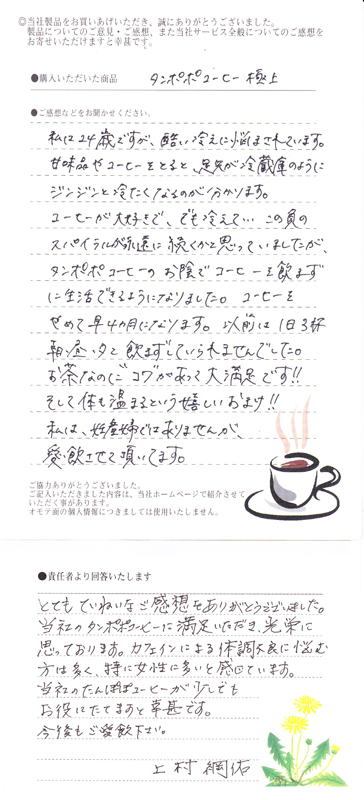 ◎当社製品をお買いあげいただき、誠にありがとうございました。
製品についてのご意見・ご感想、また当社サービス全般についてのご感想を
お寄せいただけますと幸甚です。
●購入いただいた商品
タンポポコーヒー極上
●ご感想などをお聞かせください。
私は24歳ですが、酷い冷えに悩まされています。
甘味品やコーヒーをとると、足先が冷蔵庫のように
ジンジンと冷たくなるのが分かります。
コーヒーが大好きで、でも冷えてい この負の
スパイラルが永遠に続くかと思っていましたが、
タンポポコーヒーのお陰でコーヒーを飲まず
に生活できるようになりました。コーヒーを
やめて早4カ月になります。以前は1日3杯
朝・昼・夕と飲まずしていられませんでした。
お茶なのにコクがあって大満足です!!
そして体も温まるという嬉しいおまけ!!
私は、妊産婦ではありませんが、
愛飲させて頂いてます。
ご協力ありがとうございました。
ご記入いただきました内容は、当社ホームページで紹介させて
いただく事があります。
オモテ面の個人情報につきましては使用いたしません。
●責任者より回答いたします
とてもていねいなご感想をありがとうございました。
当社のタンポポコーヒーに満足いただき、光栄に
思っております。カフェインによる体調不良に悩む
方は多く、特に女性に多いと感じています。
当社のたんぽぽコーヒーが少しでも
お役にたてますと幸甚です。
今後もご愛飲下さい。
上村綱佑